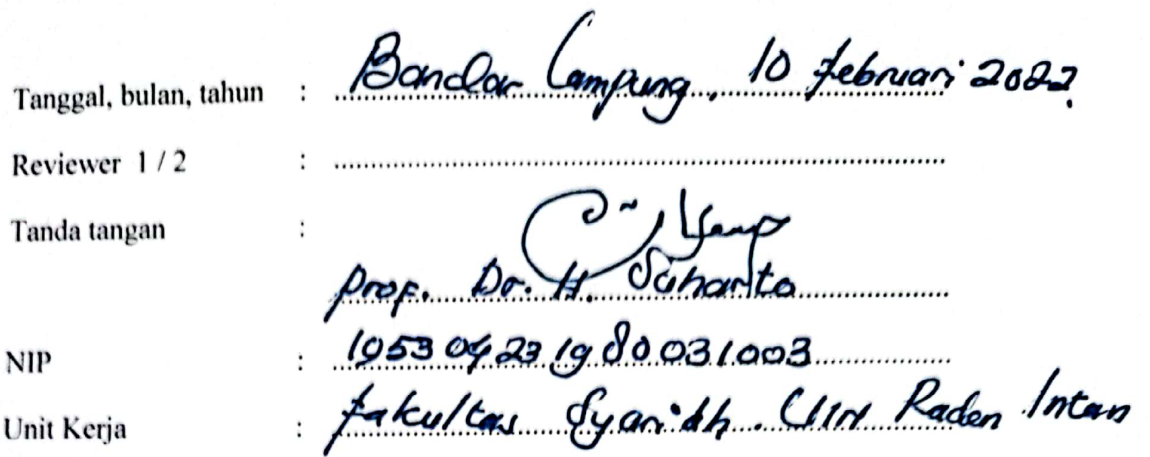 Tanggal, bulan, tahun : Bandar Lampung, 10 Februari 2022.
Reviewer 1 / 2 :
Tanda tangan :
Prof. Dr. H. Suharto
NIP : 195304231980031003
Unit Kerja : Fakultas Syari'ah. UIN Raden Intan